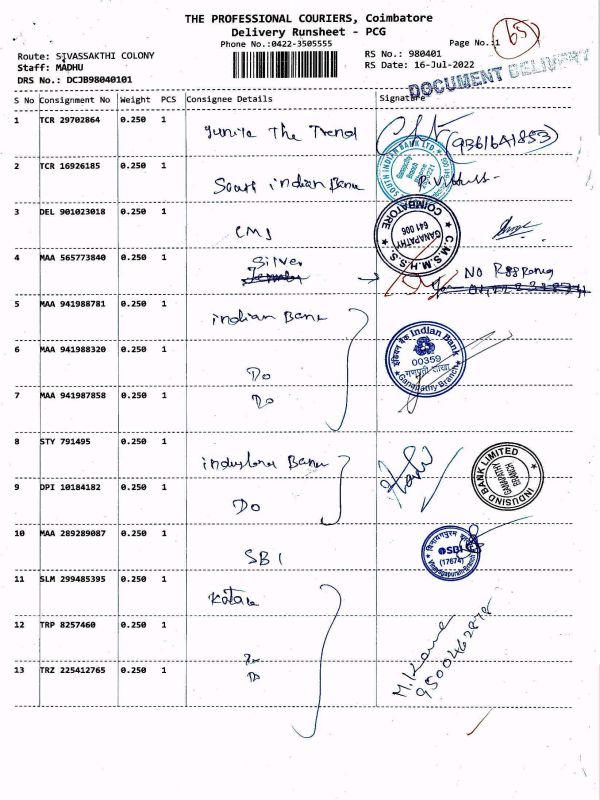 THE PROFESSIONAL COURIERS, Coimbatore
Delivery Runsheet - PCG
Phone No.:0422-3505555
Page No.:1
65
Route: SIVASSAKTHI COLONY
RS No.: 980401
Staff: MADHU
RS Date: 16-Jul-2022
DRS No.: DCJB98040101
DOCUMENT DELIVERY
S No Consignment No Weight PCS Consignee Details Signature
1 TCR 29702864 0.250 1 The Trend (9361641853)
SOUTH INDIAN BANK LTD
2 TCR 16926185 0.250 1 indian Bank
3 DEL 901023018 0.250 1 CMS
C.M.S.M.H.S.S. COIMBATORE
GANAPATHY
641 006
4 MAA 565773840 0.250 1 Silver NO
5 MAA 941988781 0.250 1 indian Bank
6 MAA 941988320 0.250 1 Do
इंडियन बैंक Indian Bank
00359
गणपती शाखा
Ganapathy Branch
7 MAA 941987858 0.250 1 Do
8 STY 791495 0.250 1 Bank
INDUSIND BANK LIMITED
GANAPATHY
BRANCH
9 DPI 10184182 0.250 1 Do
10 MAA 289289087 0.250 1 SBI
SBI
(17674)
11 SLM 299485395 0.250 1
12 TRP 8257460 0.250 1 Do
13 TRZ 225412765 0.250 1 Do
9500462878